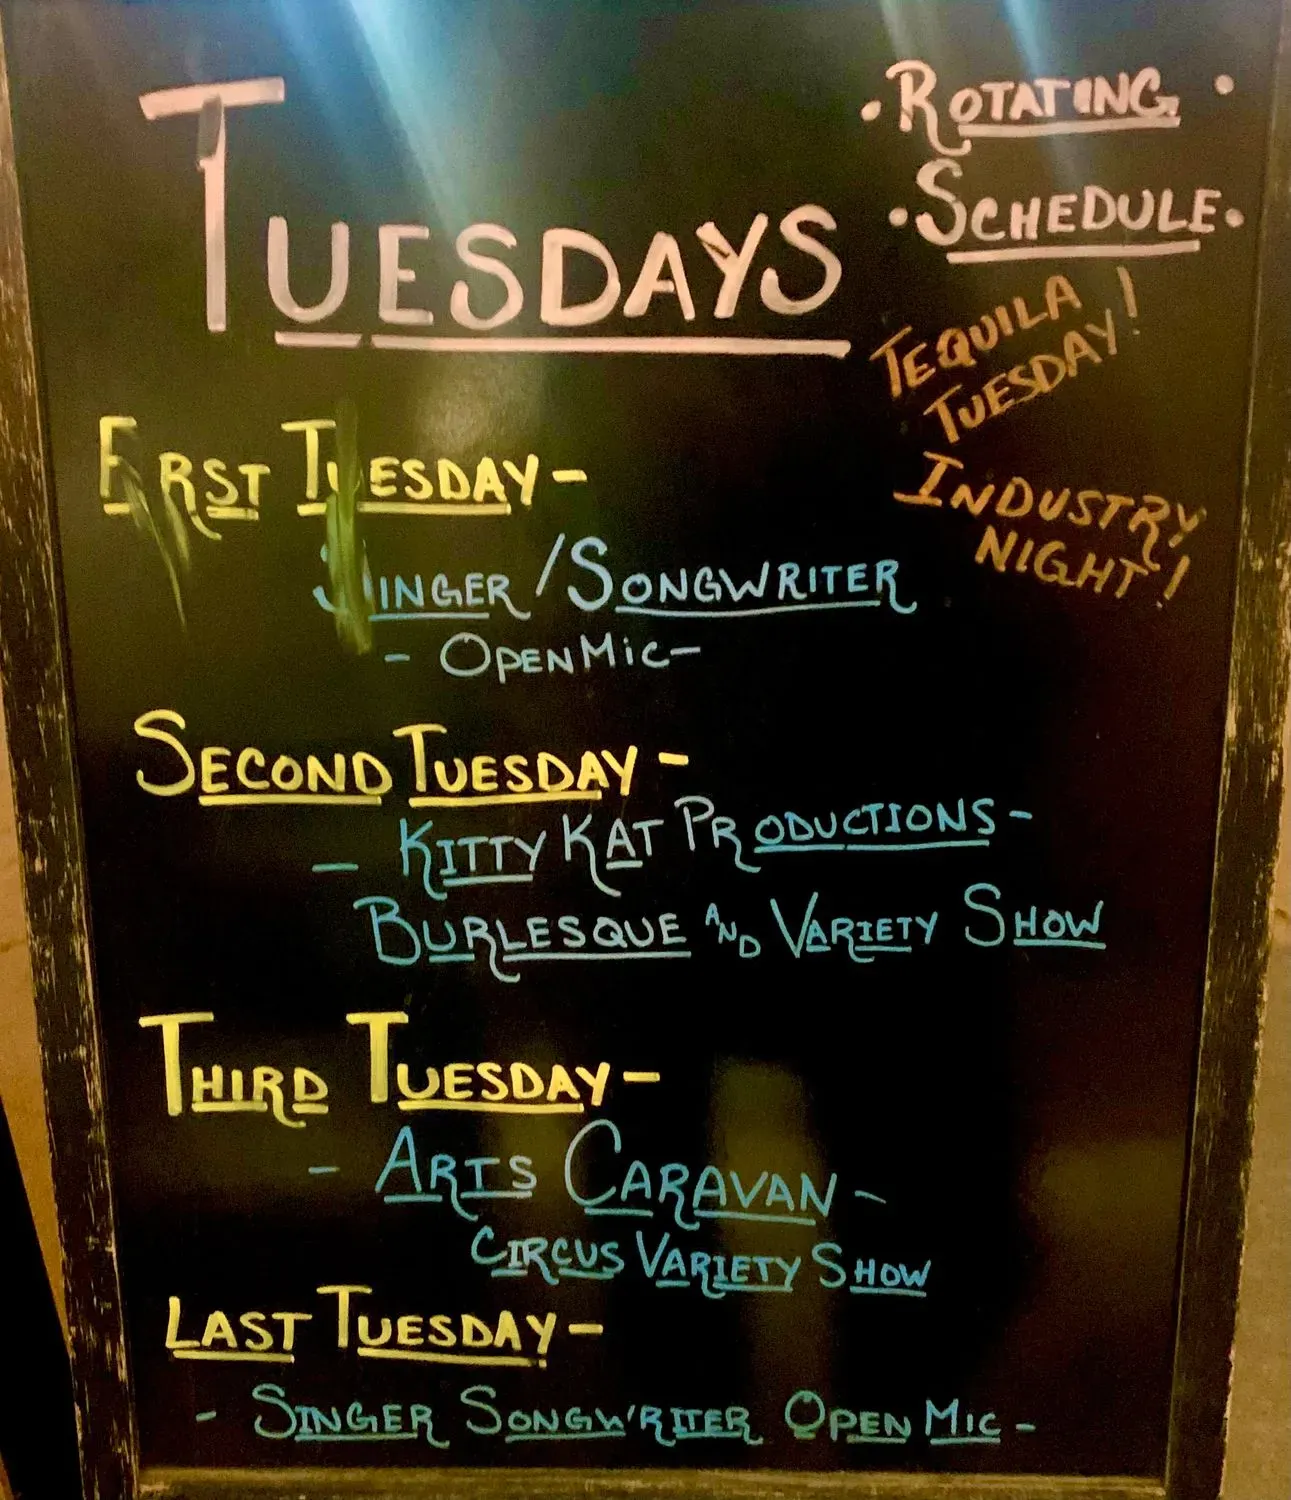 TUESDAYS
• ROTATING •
• SCHEDULE •
TEQUILA
TUESDAY!
INDUSTRY
NIGHT!
FIRST TUESDAY -
SINGER / SONGWRITER
- OPEN MIC -
SECOND TUESDAY -
- KITTY KAT PRODUCTIONS -
BURLESQUE AND VARIETY SHOW
THIRD TUESDAY -
- ARTS CARAVAN -
CIRCUS VARIETY SHOW
LAST TUESDAY -
- SINGER SONGWRITER OPEN MIC -